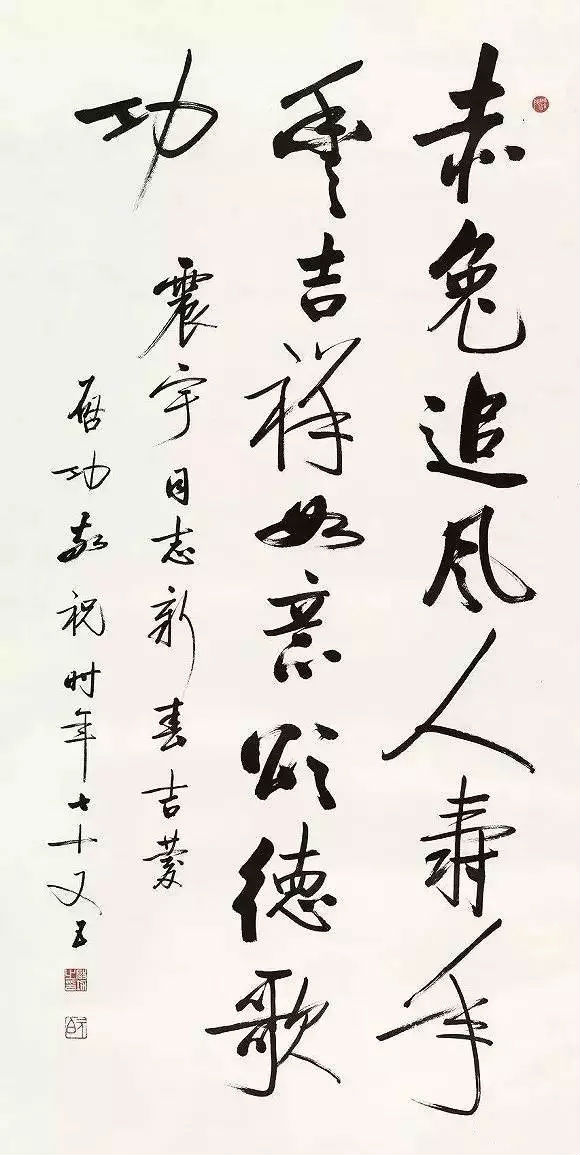 赤兔追风人寿年
丰吉祥如意颂德歌
功
震宇同志新春吉庆
启功敬祝时年七十又五